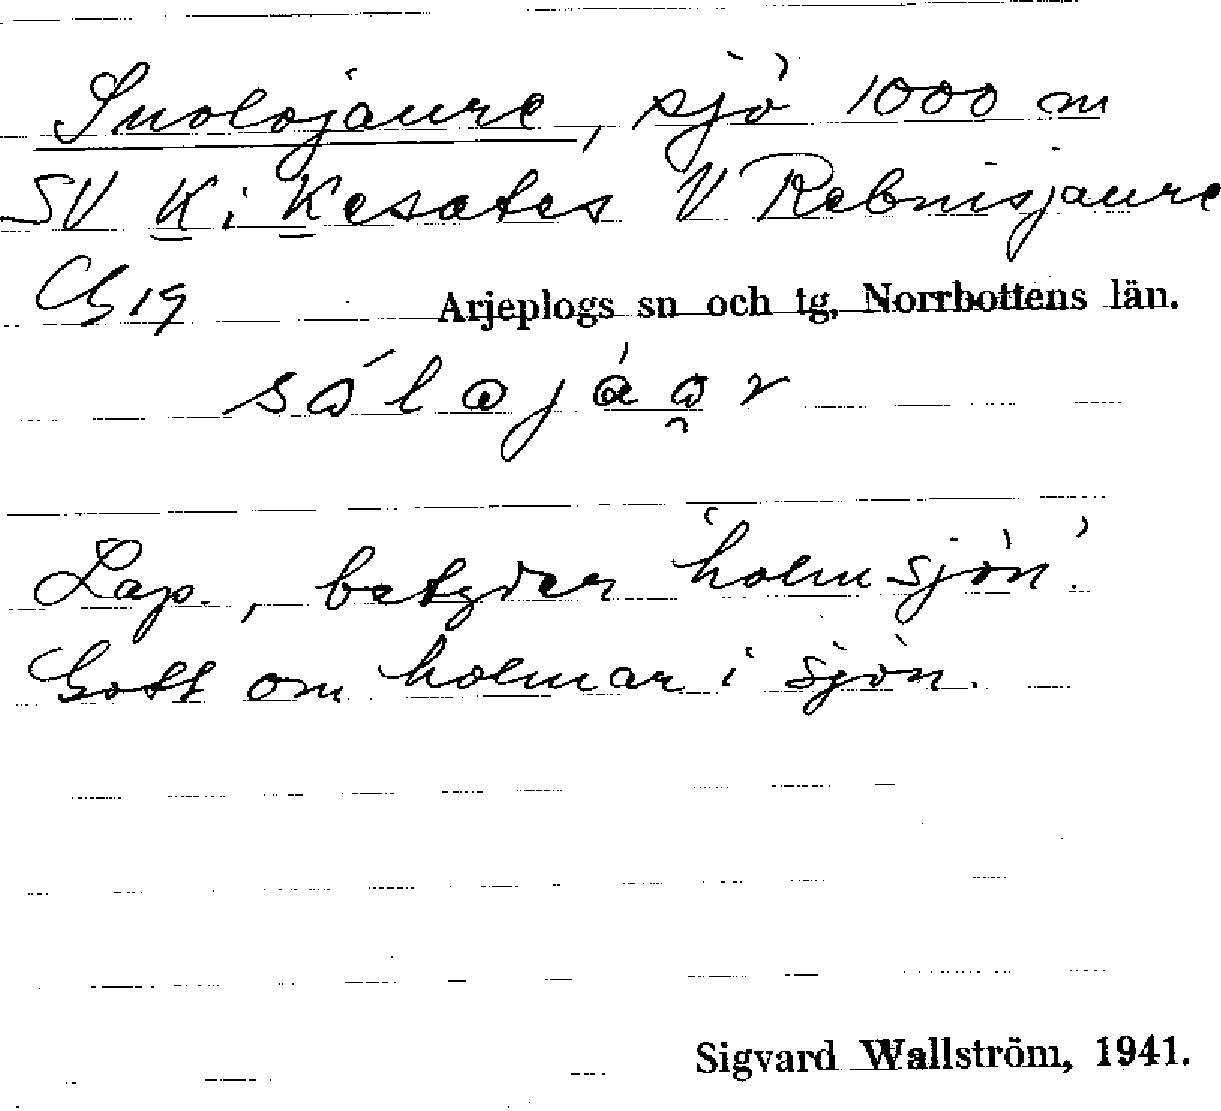 Suolojaure, sjö 1000 m
SV K i Kesates V Rebnisjaure
Cb 19 Arjeplogs sn och tg, Norrbottens län.
Lap., betyder 'holmsjön'.
Gott om holmar i sjön.
Sigvard Wallström, 1941.